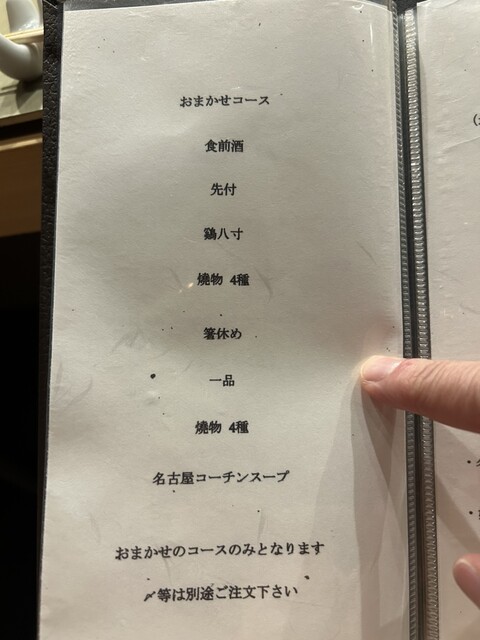 おまかせコース
食前酒
先付
鶏八寸
焼物 4種
箸休め
一品
焼物 4種
名古屋コーチンスープ
おまかせのコースのみとなります
〆等は別途ご注文下さい